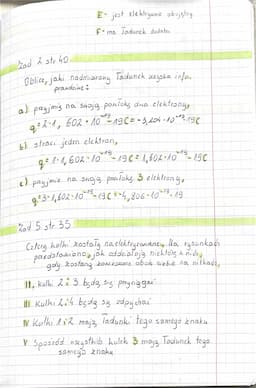 E - jest elektrycznie obojętny
F - ma ładunek dodatni
Zad 2 str 40
Oblicz, jaki nadmiarowy ładunek uzyska ciało,
a) przyjmie na swoją powłokę dwa elektrony,
b) straci jeden elektron,
c) przyjmie na swoją powłokę 3 elektrony,
Zad 5 str. 35
Cztery kulki zostały naelektryzowane. Na rysunkach
przedstawiono, jak oddziałują niektóre z nich,
gdy zostaną zawieszone obok siebie na nitkach.
II. kulki 2 i 3 będą się przyciągać
III Kulki 2 i 4 będą się odpychać
IV Kulki 1 i 2 mają ładunki tego samego znaku
V Spośród wszystkich kulek 3 mają ładunek tego
samego znaku